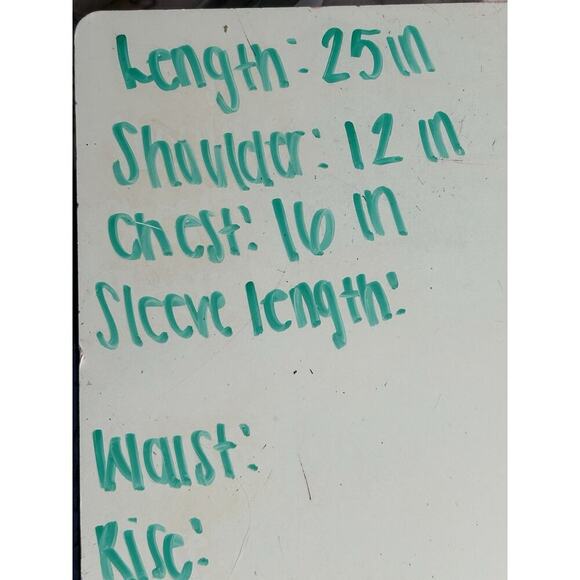 Length: 25in
Shoulder: 12 in
Chest: 16 in
Sleeve length:
Waist:
Rise: